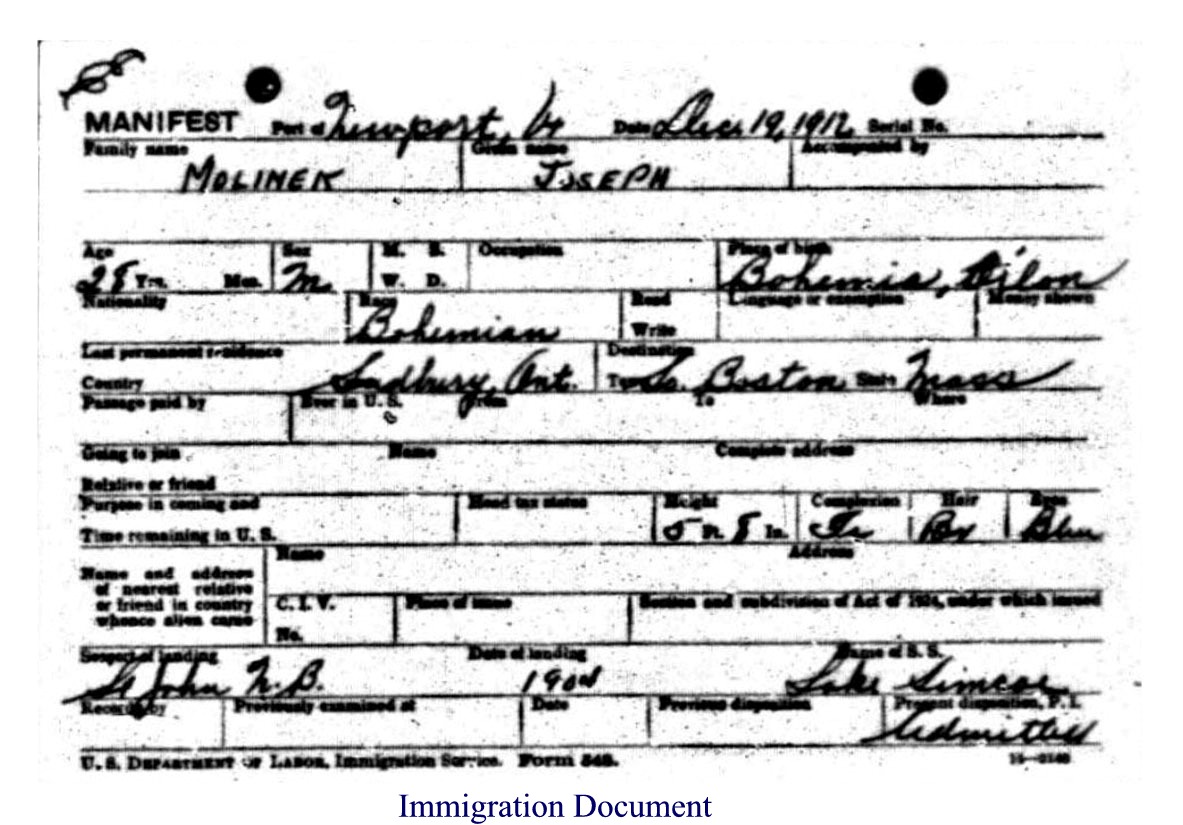 MANIFEST Port of Newport, Vt Date Dec. 19, 1912 Serial No.
Family name Given name Accompanied by
MOLINEK JOSEPH
Age Sex M. S. Occupation Place of birth
28 Yrs. Mos. M. W. D. Bohemia,
Nationality Race Read Language or exemption Money shown
Bohemian Write
Last permanent residence Destination
Country Sudbury, Ont. Town So. Boston State Mass
Passage paid by Ever in U. S. From To Where
Going to join Name Complete address
Relative or friend
Purpose in coming and Head tax status Height Complexion Hair Eyes
Time remaining in U. S. 5 Ft. 8 In. Fr Br Blue
Name Address
Name and address
of nearest relative
or friend in country
whence alien came
C. I. V. Place of issue Section and subdivision of Act of 1924, under which issued
No.
Seaport of landing Date of landing Name of S. S.
St John N.B. Lake Simcoe
Records by Previously examined at Date Previous disposition Present disposition, P. I.
Admitted
U. S. DEPARTMENT OF LABOR, Immigration Service. Form 548.
Immigration Document